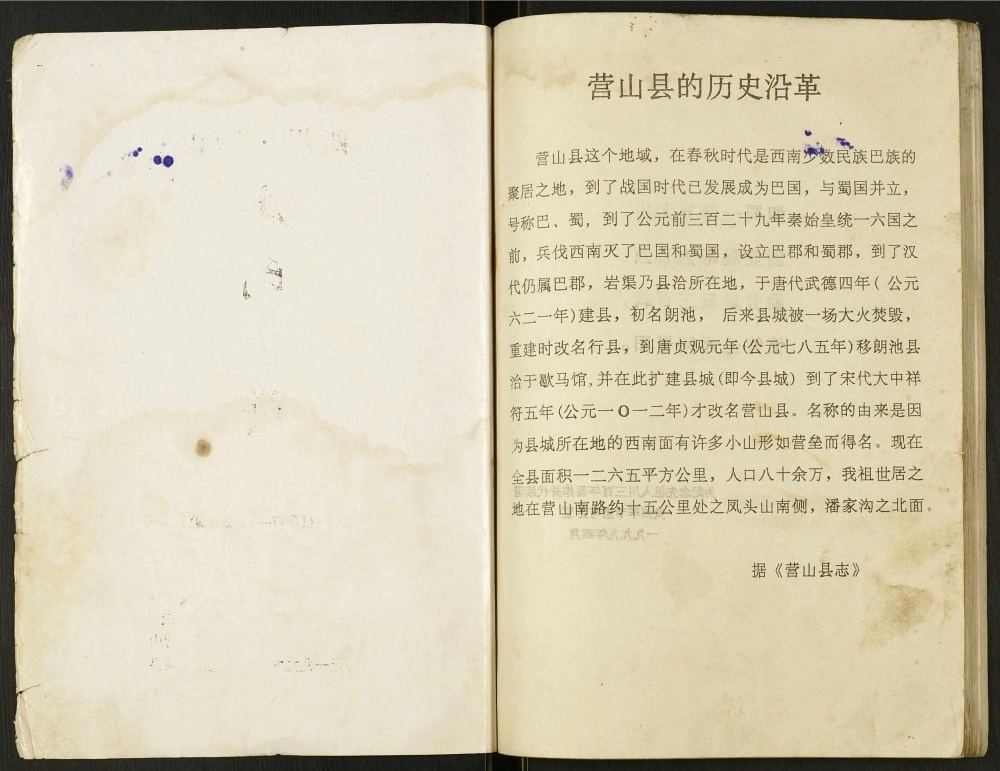 营山县的历史沿革
营山县这个地域，在春秋时代是西南少数民族巴族的
聚居之地，到了战国时代已发展成为巴国，与蜀国并立，
号称巴、蜀，到了公元前三百二十九年秦始皇统一六国之
前，兵伐西南灭了巴国和蜀国，设立巴郡和蜀郡，到了汉
代仍属巴郡，岩渠乃县治所在地，于唐代武德四年( 公元
六二一年)建县，初名朗池， 后来县城被一场大火焚毁，
重建时改名行县，到唐贞观元年(公元七八五年)移朗池县
治于歇马馆,并在此扩建县城(即今县城) 到了宋代大中祥
符五年(公元一O一二年)才改名营山县。名称的由来是因
为县城所在地的西南面有许多小山形如营垒而得名。现在
全县面积一二六五平方公里，人口八十余万，我祖世居之
地在营山南路约十五公里处之凤头山南侧，潘家沟之北面。
据《营山县志》